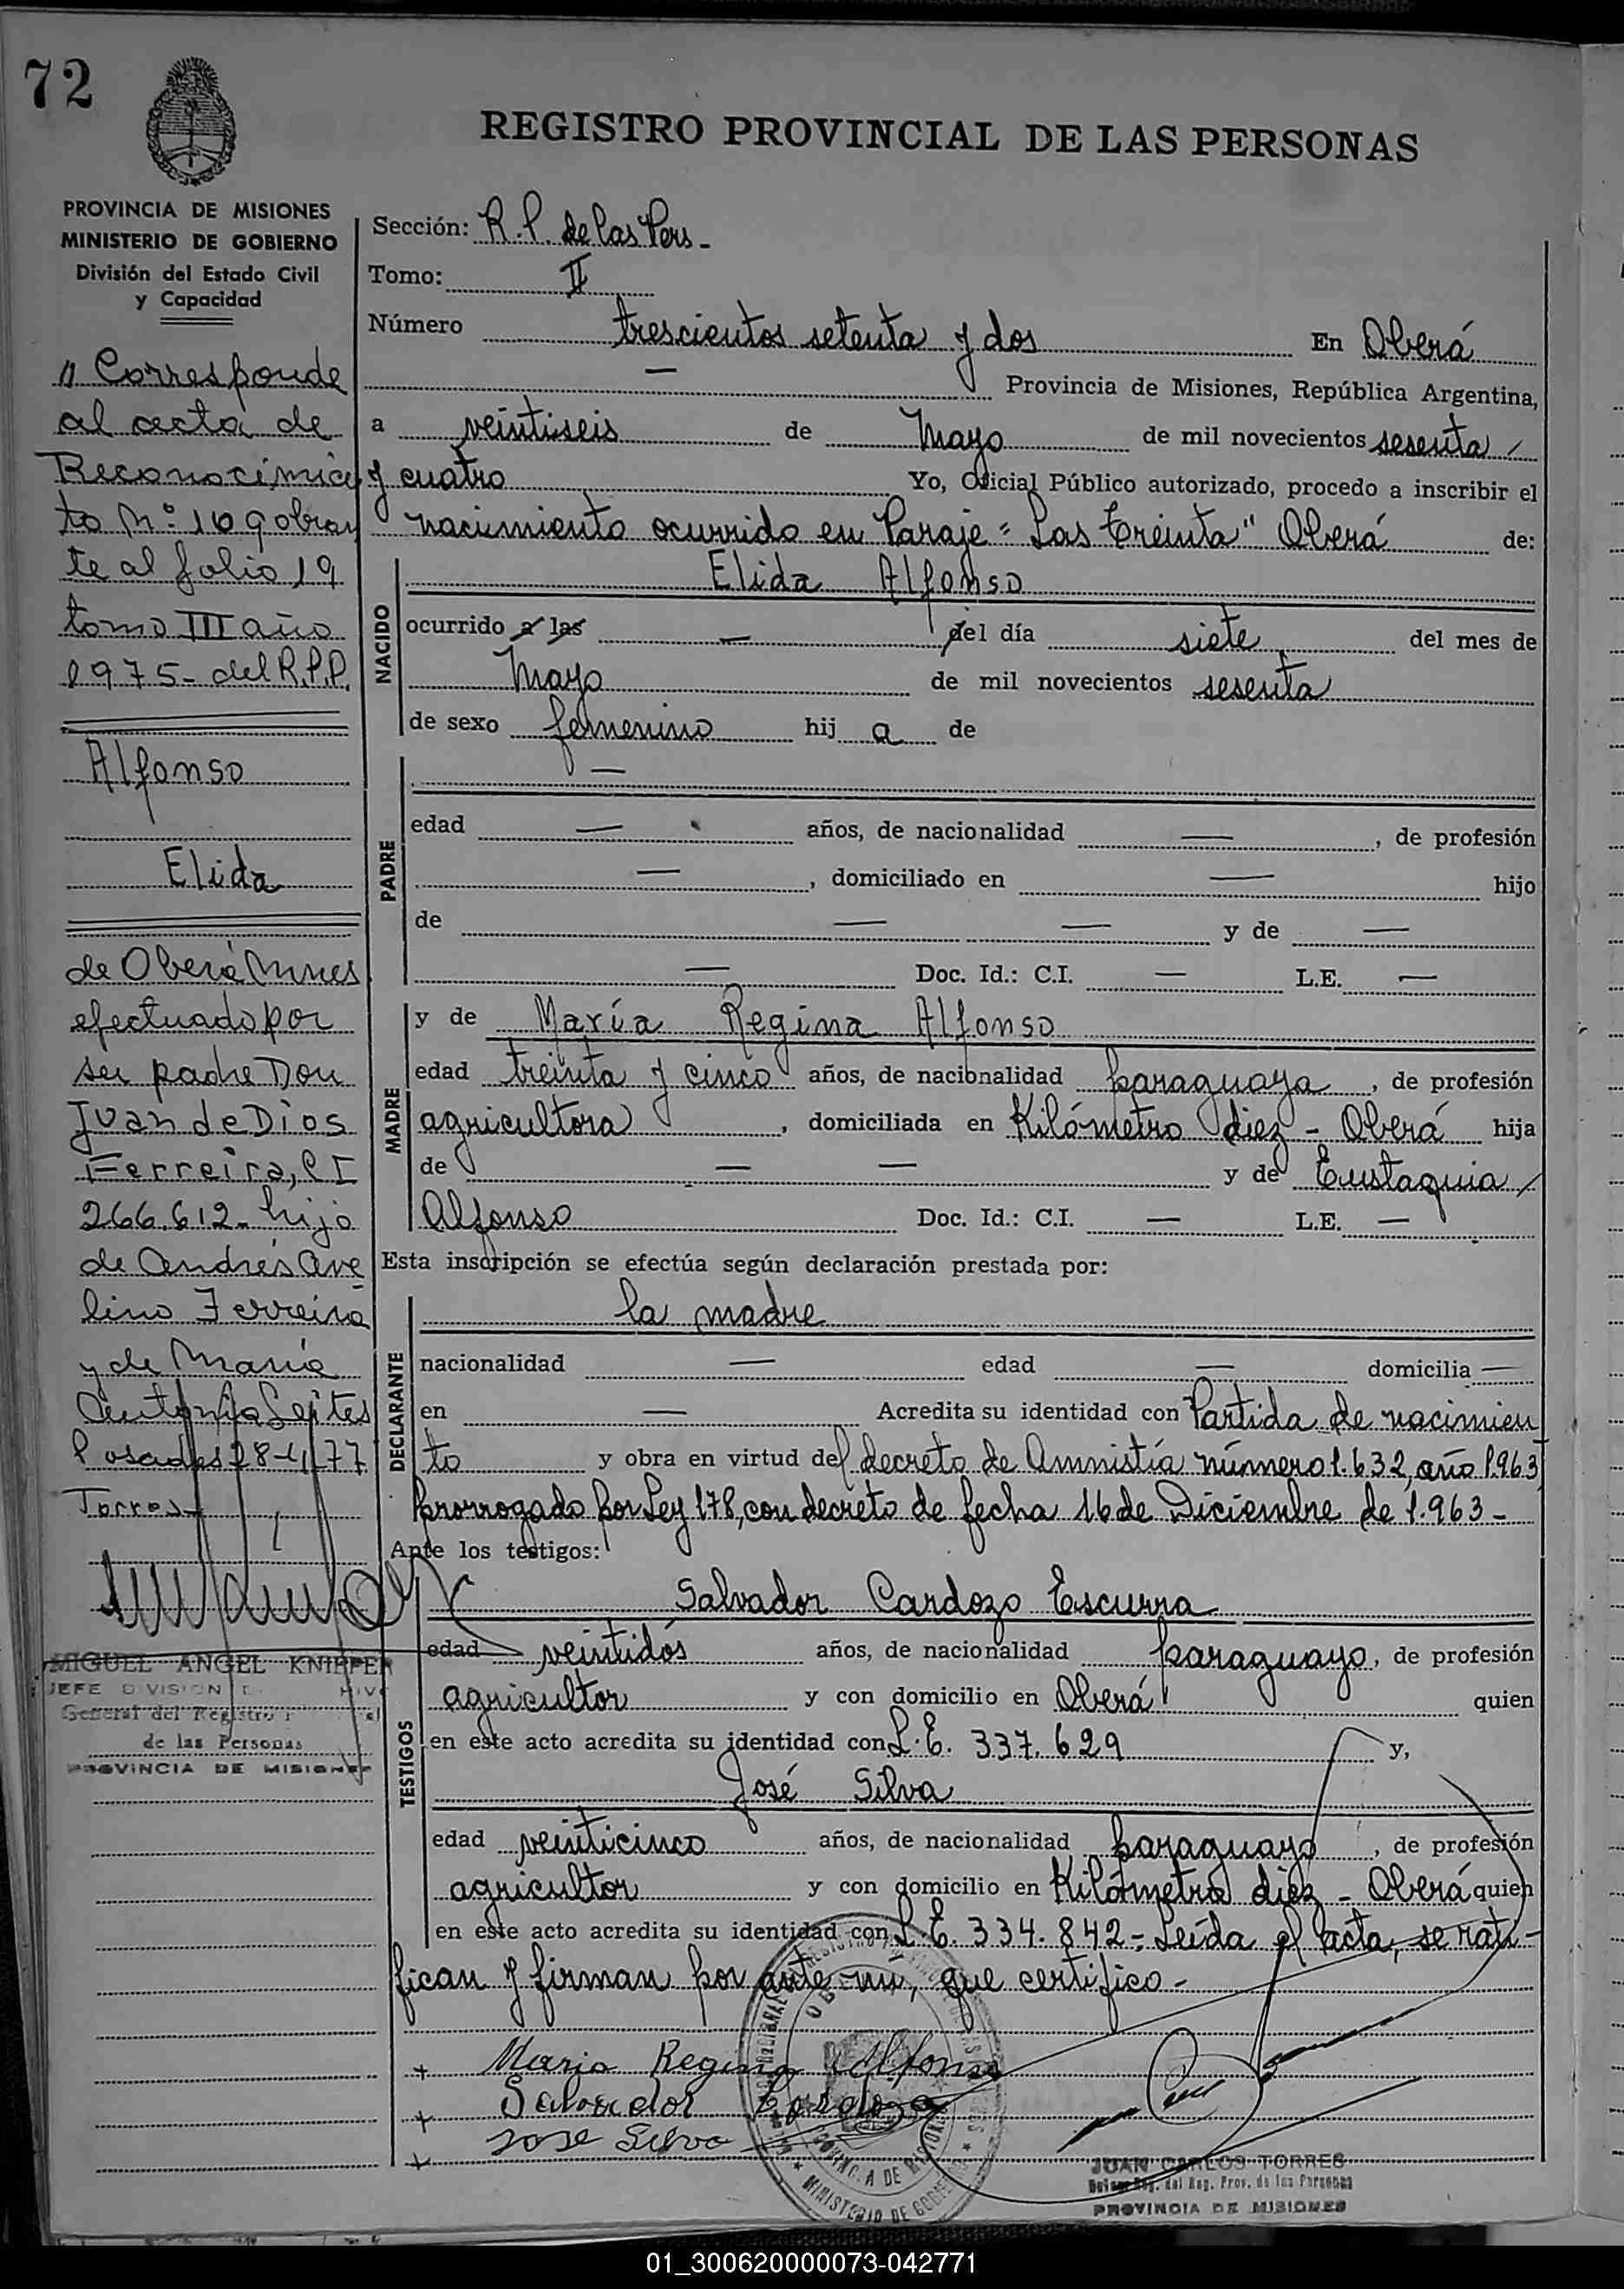 72
REGISTRO PROVINCIAL DE LAS PERSONAS
PROVINCIA DE MISIONES
MINISTERIO DE GOBIERNO
División del Estado Civil
y Capacidad
Sección: R.P. de las Pers -
Tomo: II
Número trescientos setenta y dos En Oberá
— Provincia de Misiones, República Argentina,
a veintiseis de Mayo de mil novecientos sesenta /
y cuatro Yo, Oficial Público autorizado, procedo a inscribir el
nacimiento ocurrido en Paraje = Las Treinta" Oberá de:
NACIDO
Elida Alfonso
ocurrido a las — del día siete del mes de
Mayo de mil novecientos sesenta
de sexo femenino hij a de
PADRE
—
edad — años, de nacionalidad —, de profesión
—, domiciliado en — hijo
de — — y de —
— Doc. Id.: C.I. — L.E. —
MADRE
y de María Regina Alfonso
edad treinta y cinco años, de nacionalidad paraguaya, de profesión
agricultora, domiciliada en Kilómetro diez - Oberá hija
de — — y de Eustaquia /
Alfonso Doc. Id.: C.I. — L.E. —
Esta inscripción se efectúa según declaración prestada por:
DECLARANTE
la madre
nacionalidad — edad — domicilia —
en — Acredita su identidad con Partida de nacimien
to y obra en virtud del decreto de Amnistía número 1.632, año 1.963,
prorrogado por Ley 178, con decreto de fecha 16 de Diciembre de 1.963 -
Ante los testigos:
TESTIGOS
Salvador Cardozo Escurra
edad veintidós años, de nacionalidad paraguayo, de profesión
agricultor y con domicilio en Oberá quien
en este acto acredita su identidad con L.E. 337.629 y,
José Silva
edad veinticinco años, de nacionalidad paraguayo, de profesión
agricultor y con domicilio en Kilómetro diez - Oberá quien
en este acto acredita su identidad con L.E. 334.842 - Leída el acta, se rati-
fican y firman por ante mí, que certifico -
+ Maria Regina Alfonso
+ Salvador Cardozo
+ Jose Silva
JUAN CARLOS TORRES
Reg. del Reg. Prov. de las Personas
PROVINCIA DE MISIONES
MINISTERIO DE GOBIERNO
PROVINCIA DE MISIONES
" Corresponde
al acta de
Reconocimien
to Nº 169 obran
te al folio 19
tomo III año
1975 - del R.P.P.
Alfonso
Elida
de Oberá Mnes
efectuado por
su padre Don
Juan de Dios
Ferreira, CI
266.612 - hijo
de Andrés Ave
lino Ferreira
y de María
Antonia Leites
Posadas 28-4-77
Torres
MIGUEL ANGEL KNIPPER
JEFE DIVISION
General del Registro
de las Personas
PROVINCIA DE MISIONES
01_300620000073-042771